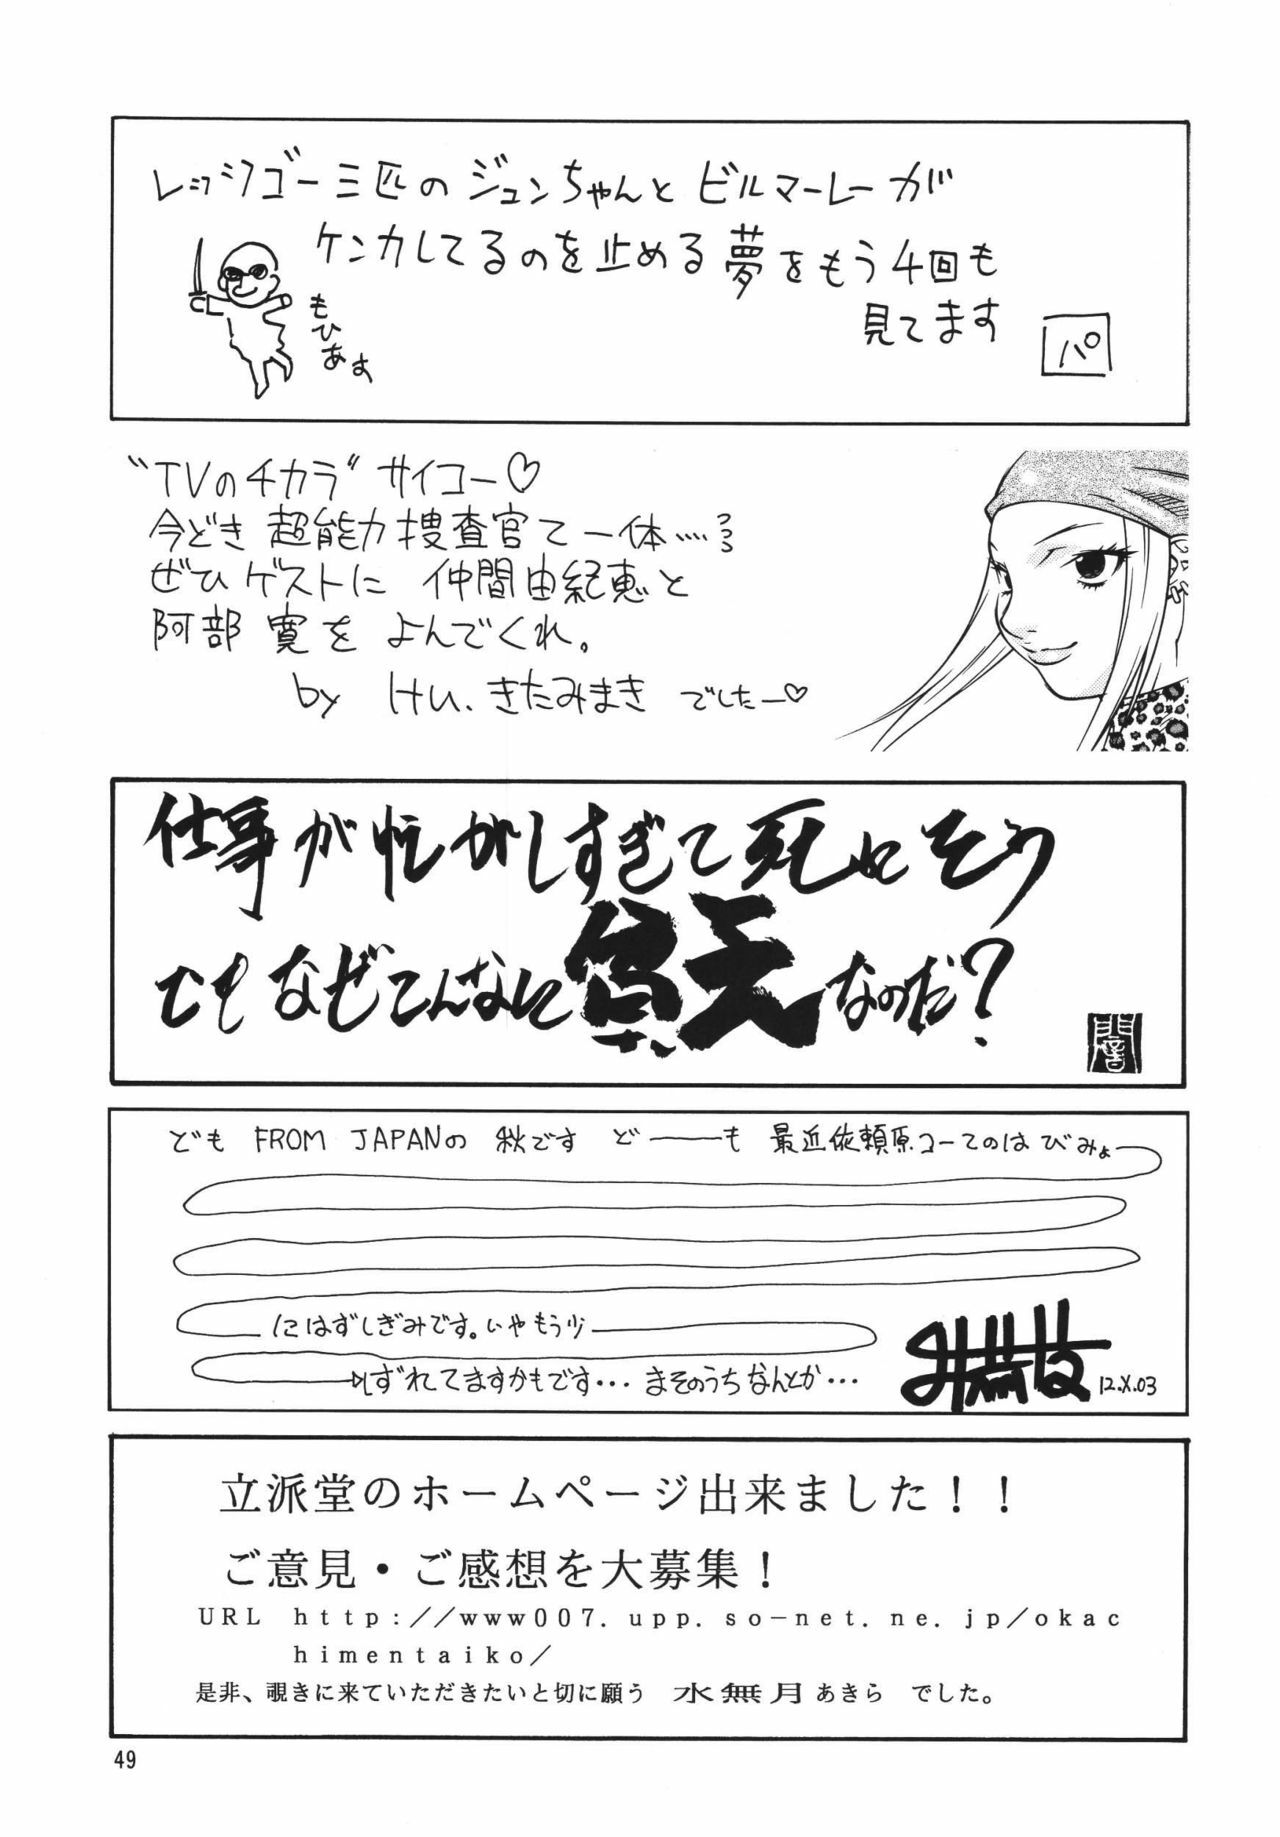 レッツゴー三匹のジュンちゃんと ビルマーレーが
ケンカしてるのを止める夢をもう4回も
見てます
パ
もひあす
"TVのチカラ" サイコー♡
今どき 超能力捜査官て一体……
ぜひゲストに 仲間由紀恵と
阿部 寛を よんでくれ。
by Hu. きたみまき でしたー♡
仕事が忙がしすぎて死にそう
でもなぜこんなに貧乏なのだ?
どもFROM JAPANの 秋です どーーも 最近依頼原コーてのは びみょー
にはずしぎみです。いやもう少
しずれてますかもです… まそのうちなんとか…
12.X.03
立派堂のホームページ出来ました！！
ご意見・ご感想を大募集！
URL http://www007.upp.so-net.ne.jp/okac
himentaiko/
是非、覗きに来ていただきたいと切に願う 水無月あきら でした。
49